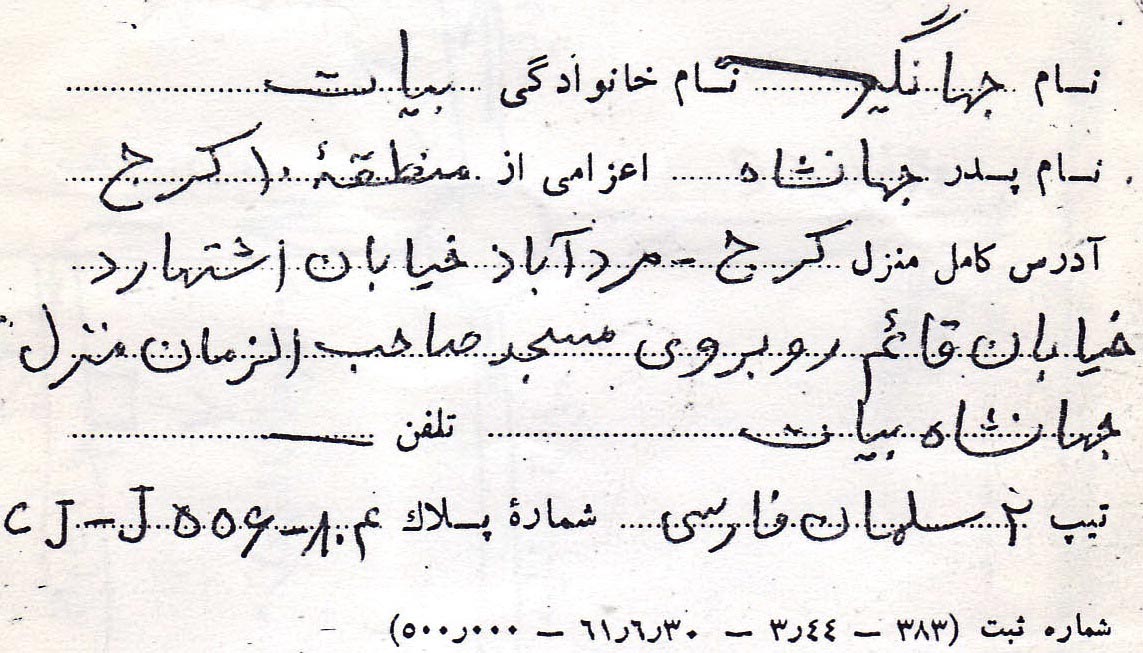 نام جهانگیر نام خانوادگی بیات
نام پدر جهانشاه اعزامی از منطقهٔ ۱۰ کرج
آدرس کامل منزل کرج - مردآباد خیابان اشتهارد
خیابان قائم روبروی مسجد صاحب الزمان منزل
جهانشاه بیات تلفن —
تیپ ۲ سلمان فارسی شمارهٔ پلاک CJ-J۵۵۶-
شماره ثبت (۳۸۳ – ۳٫۴۴ – ۶۱٫۶٫۳۰ – ۵۰۰٫۰۰۰)